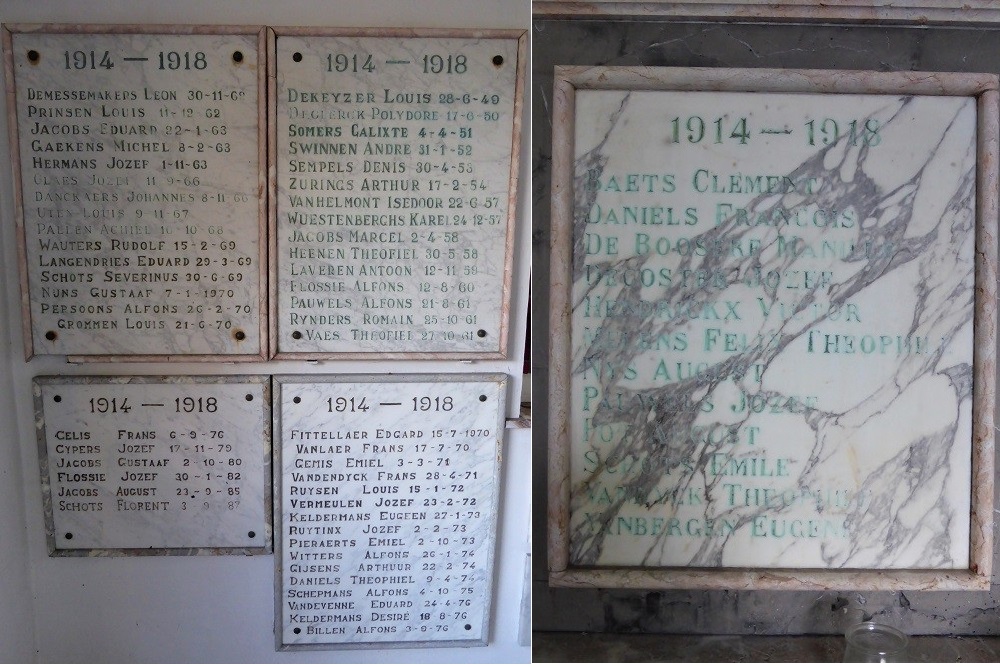 1914 — 1918
DEMESSEMAKERS LEON 30-11-
PRINSEN LOUIS 11-12-62
JACOBS EDUARD 22-1-63
GAEKENS MICHEL 8-2-63
HERMANS JOZEF 1-11-63
CLAES JOZEF 11-9-66
DANCKAERS JOHANNES 8-11-66
LOUIS 9-11-67
PAELEN ACHIEL 10-10-68
WAUTERS RUDOLF 15-2-69
LANGENDRIES EDUARD 29-3-69
SCHOTS SEVERINUS 30-6-69
NIJNS GUSTAAF 7-1-1970
PERSOONS ALFONS 26-2-70
GROMMEN LOUIS 21-6-70
1914 — 1918
DEKEYZER LOUIS 28-6-49
DECLERCK POLYDORE 17-6-50
SOMERS CALIXTE 4-4-51
SWINNEN ANDRE 31-1-52
SEMPELS DENIS 30-4-53
ZURINGS ARTHUR 17-2-54
VANHELMONT ISEDOOR 22-6-57
WUESTENBERGHS KAREL 24 12-57
JACOBS MARCEL 2-4-58
HEENEN THEOFIEL 30-5-58
LAVEREN ANTOON 12-11-59
FLOSSIE ALFONS 12-8-60
PAUWELS ALFONS 21-8-61
RYNDERS ROMAIN 25-10-61
VAES THEOFIEL 27-10-61
1914 — 1918
CELIS FRANS 6-9-76
CYPERS JOZEF 17-11-79
JACOBS GUSTAAF 2-10-80
FLOSSIE JOZEF 30-1-82
JACOBS AUGUST 23-9-85
SCHOTS FLORENT 3-9-87
1914 — 1918
FITTELLAER EDGARD 15-7-1970
VANLAER FRANS 17-7-70
GEMIS EMIEL 3-3-71
VANDENDYCK FRANS 28-4-71
RUYSEN LOUIS 15-1-72
VERMEULEN JOZEF 23-2-72
KELDERMANS EUGEEN 27-1-73
RUYTINX JOZEF 2-2-73
PIERAERTS EMIEL 2-10-73
WITTERS ALFONS 26-1-74
GIJSENS ARTHUUR 22-2-74
DANIELS THEOPHIEL 9-4-74
SCHEPMANS ALFONS 4-10-75
VANDEVENNE EDUARD 24-4-76
KELDERMANS DESIRÉ 18-8-76
BILLEN ALFONS 3-9-76
1914 — 1918
BAETS CLEMENT
DANIELS FRANCOIS
DE BOOSERE
DECOSTER JOZEF
HENDRICKX VICTOR
FELIX THEOPHIEL
NYS AUGUST
PAUWELS JOZEF
AUGUST
EMILE
THEOPHIEL
VANBERGEN EUGENE